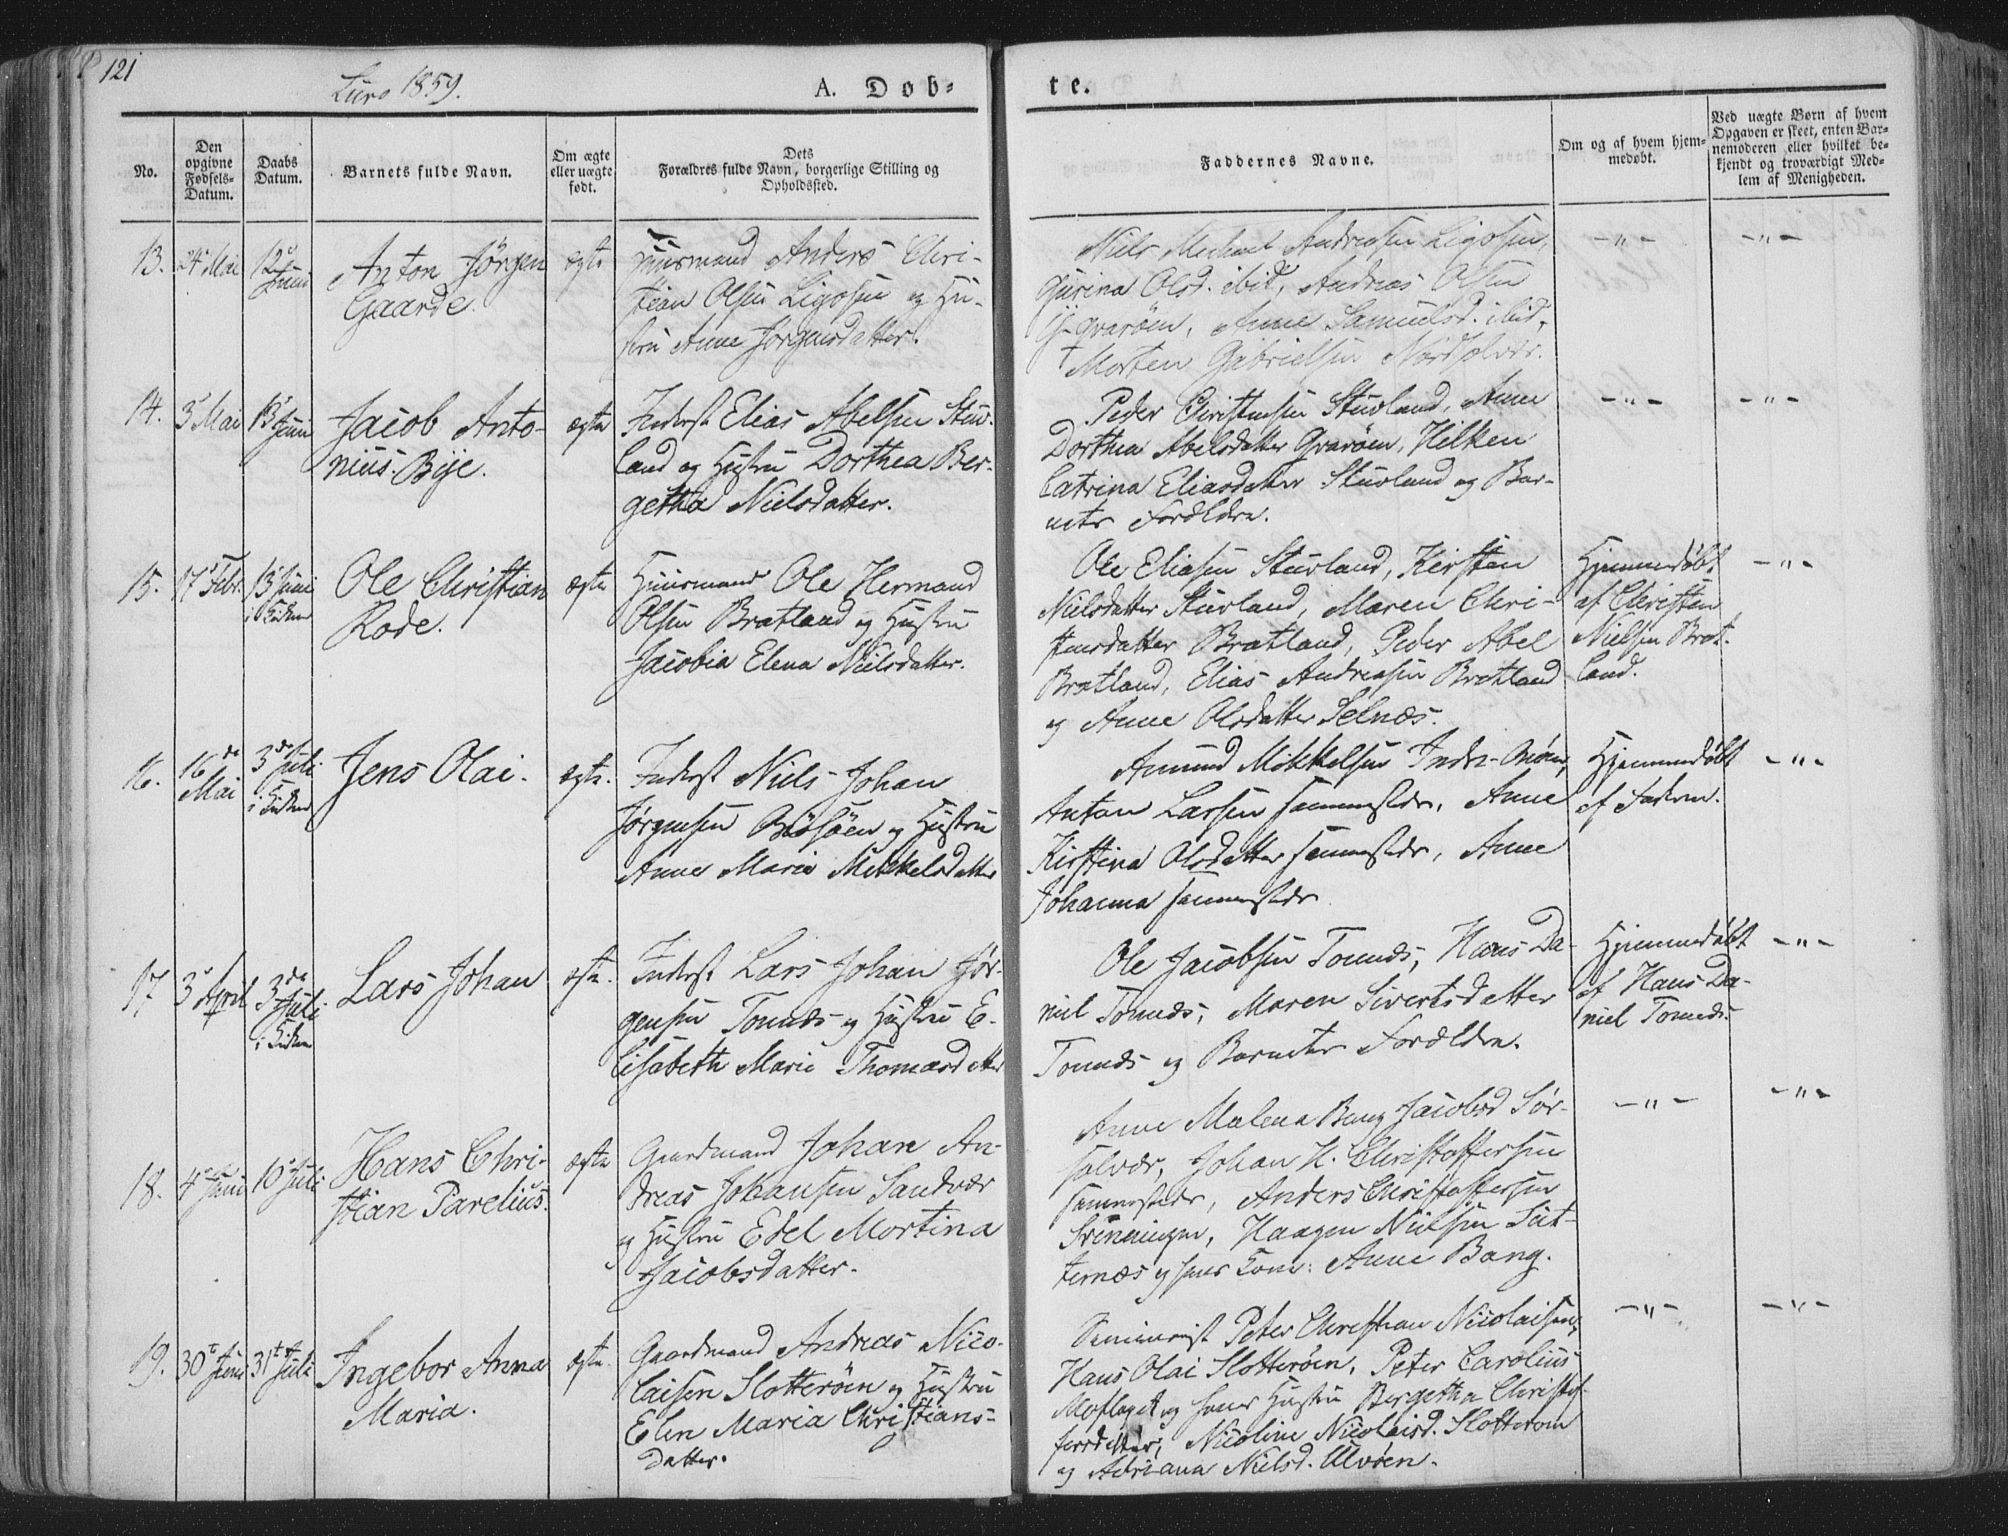 121
Lurø 1859.
A. Dob-
te.
No.
Den opgivne Fødsels-Datum.
Daabs Datum.
Barnets fulde Navn.
Om ægte eller uægte født.
Dets Forældres fulde Navn, borgerlige Stilling og Opholdssted.
Faddernes Navne.
Om og af hvem hjemmedøbt.
Ved uægte Børn af hvem Opgaven er skeet, enten Barnemoderen eller hvilket bekjendt og troværdigt Medlem af Menigheden.
13. 24 Mai
12 Juni
Anton Jørgen
Gaarde.
ægte
Huusmand Anders Chri-
stian Olsen Ligosen og Hu-
stru Anne Jørgensdatter.
Niels Michael Andreasen Ligosen,
Gurina Olsd. ibid, Andreas Olsen
Qvarøen, Anne Samuelsd. ibid,
Morten Gabrielsen Nordsolvær.
-"-
-"-
14. 3 Mai
13 Juni
Jacob Anto-
nius Bye.
ægte
Inderst Elias Abelsen Stuv-
land og Hustru Dorthea Ber-
getha Nielsdatter.
Peder Christensen Stuvland, Anne
Dorthea Abelsdatter Qvarøen, Hilken
Catrina Eliasdatter Stuvland og Bar-
nets Forældre.
-"-
-"-
15. 17 Febr.
13 Juni
i Kirken
Ole Christian
Rode.
ægte
Huusmand Ole Hermand
Olsen Bratland og Hustru
Jacobia Elena Nielsdatter.
Ole Eliasen Stuvland, Kirsten
Nielsdatter Stuvland, Maren Chri-
stensdatter Bratland, Peder Abel
Bratland, Elias Andreasen Bratland
og Anne Olsdatter Selnæs.
Hjemmedøbt
af Christen
Nielsen Brat-
land.
-"-
16. 16de Mai
3de Juli
i Kirken
Jens Olai.
ægte.
Inderst Niels Johan
Jørgensen og Hustru
Anne Maria Mikkelsdatter
Amund Mikkelsen Indre-
Anton Larsen sammesteds, Anne
Kirstina Olsdatter sammesteds, Anne
Johanna sammesteds
Hjemmedøbt
af Faderen.
-"-
17 3 April
3de Juli
i Kirken
Lars Johan
ægte.
Inderst Lars Johan Jør-
gensen Tonnæs og Hustru E-
lisabeth Marie Thomasdatter
Ole Jacobsen Tonnæs, Hans Da-
niel Tonnæs, Maren Sivertsdatter
Tonnæs og Barnets Forældre.
Hjemmedøbt
af Hans Da-
niel Tonnæs.
-"-
18. 4 Juni
10 Juli
Hans Chri-
stian Parelius.
ægte
Gaardmand Johan An-
dreas Johansen Sandvær
og Hustru Edel Mortina
Jacobsdatter.
Anne Malena Bang Jacobsd Sør-
solvær, Johan H. Christoffersen
sammesteds, Anders Christoffersen
Svenningen, Haagen Nielsen Sæt-
ternæs og hans Kone: Anne Bang.
-"-
-"-
19. 30te Juni
31te Juli
Ingebor Anna
Maria.
ægte.
Gaardmand Andreas Nico-
laisen Slotterøen og Hustru
Elen Maria Christians-
datter.
Seminarist Peter Christian Nicolaisen,
Hans Olai Slotterøen, Peter Carolius
Moflaget og hans Hustru Bergetha Christof-
fersdatter, Nicoline Nicolaisd. Slotterøen
og Adriana Nielsd. Ulvøen.
-"-
-"-